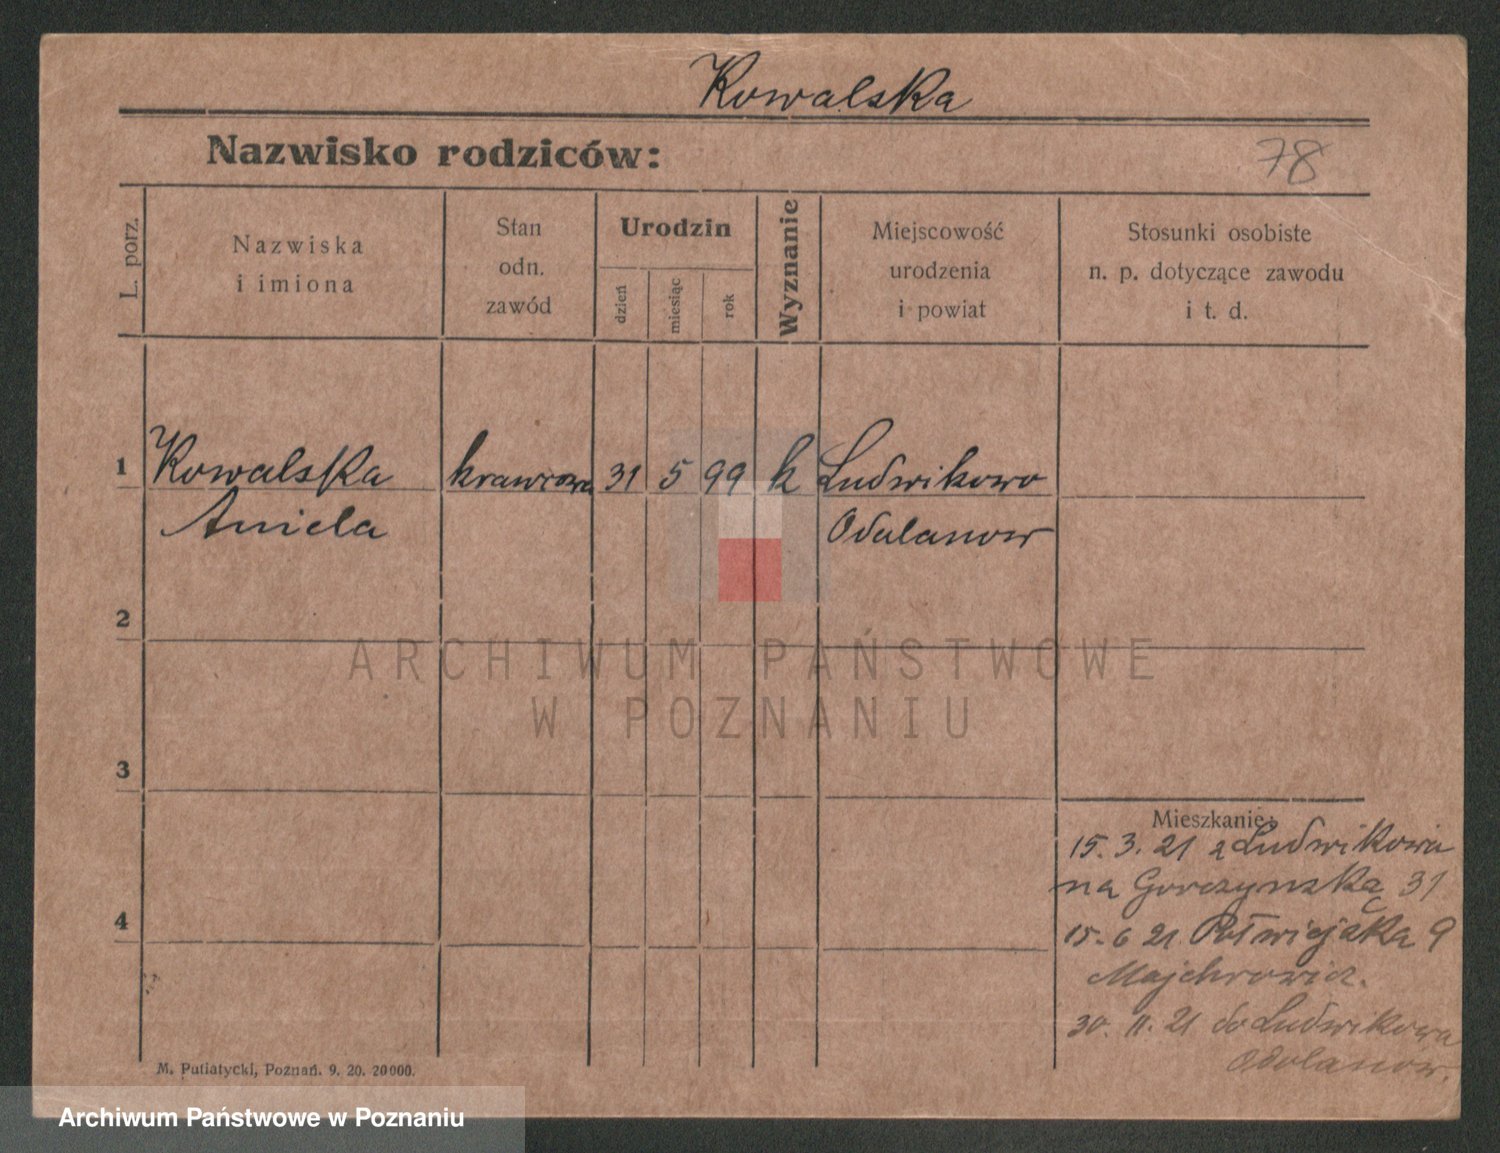 Kowalska
Nazwisko rodziców:
78
L. porz.
Nazwiska
i imiona
Stan
odn.
zawód
Urodzin
dzień
miesiąc
rok
Wyznanie
Miejscowość
urodzenia
i powiat
Stosunki osobiste
n. p. dotyczące zawodu
i t. d.
1 Kowalska krawcowa 31 5 99 k Ludwikowo
Aniela Odolanow
2
ARCHIWUM PAŃSTWOWE
W POZNANIU
3
Mieszkanie:
15. 3. 21 z Ludwikowa
na Gorczynską 31
4
15. 6 21. Półwiejska 9
Majchrowicz.
30. 11. 21 do Ludwikowa
Odolanow.
M. Putiatycki, Poznań. 9. 20. 20000.
Archiwum Państwowe w Poznaniu